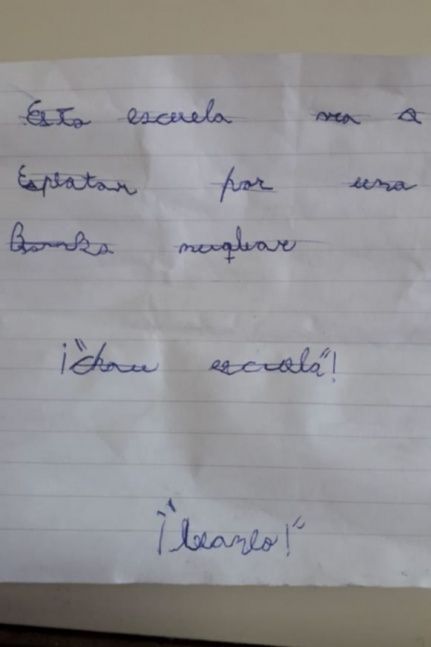 Esta escuela va a
Esplatar por una
Bomba nuqlear
¡"chau escuela"!